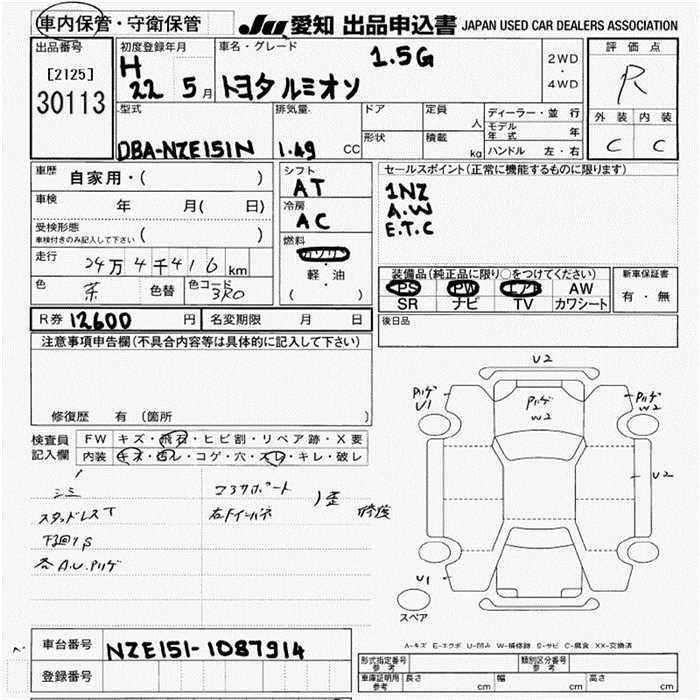 車内保管・守衛保管
JU 愛知 出品申込書 JAPAN USED CAR DEALERS ASSOCIATION
出品番号
[2125]
30113
初度登録年月
H
22 5月
車名・グレード
1.5G
トヨタ ルミオン
2WD
・
4WD
評価点
R
外装 内装
C C
型式
DBA-NZE151N
排気量
1.49 CC
ドア
形状
定員
人
積載
kg
ディーラー・並行
モデル年式 年
ハンドル 左・右
車歴 自家用・( )
車検 年 月( 日)
受検形態
車検付きのみ記入して下さい ( )
走行 24万4千416km
色 茶 色替 色コード 3R0
シフト
AT
冷房
AC
燃料
ガソリン
・
軽・油
( )
セールスポイント(正常に機能するものに限ります)
1NZ
A.W
E.T.C
装備品(純正品に限り○をつけてください)
PS PW エアB AW
SR ナビ TV カワシート
新車保証書
有・無
R券 12600 円 名変期限 月 日
後日品
注意事項申告欄(不具合内容等は具体的に記入して下さい)
修復歴 有 (箇所 )
検査員
記入欄
FW キズ・飛石・ヒビ割・リペア跡・X要
内装 キズ・汚レ・コゲ・穴・スレ・キレ・破レ
シミ
スタッドレスT
下廻りS
各A.U.ハリゲ
コアサポート
右Fインパネ
歪
修復
U2
ハリゲ
U1
ハリゲ
W2
ハリゲ
W2
U2
U1
スペア
A-キズ E-エクボ U-凹み W-補修跡 S-サビ C-腐食 XX-交換済
車台番号 NZE151-1087914
登録番号
型式指定番号
参考
類別区分番号
参考
車庫証明用
参考
長さ cm 幅 cm 高さ cm